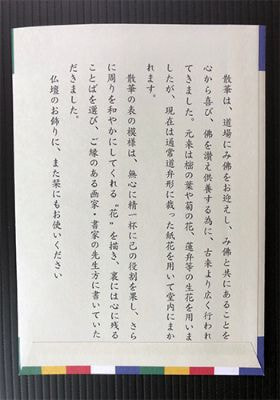 散華は、道場にみ佛をお迎えし、み佛と共にあることを
心から喜び、佛を讃え供養する為に、古来より広く行われ
てきました。元来は樒の葉や菊の花、蓮弁等の生花を用いま
したが、現在は通常蓮弁形に裁った紙花を用いて堂内にまか
れます。
散華の表の模様は、無心に精一杯に己の役割を果し、さら
に周りを和やかにしてくれる〝花〟を描き、裏には心に残る
ことばを選び、ご縁のある画家・書家の先生方に書いていた
だきました。
仏壇のお飾りに、また栞にもお使いください